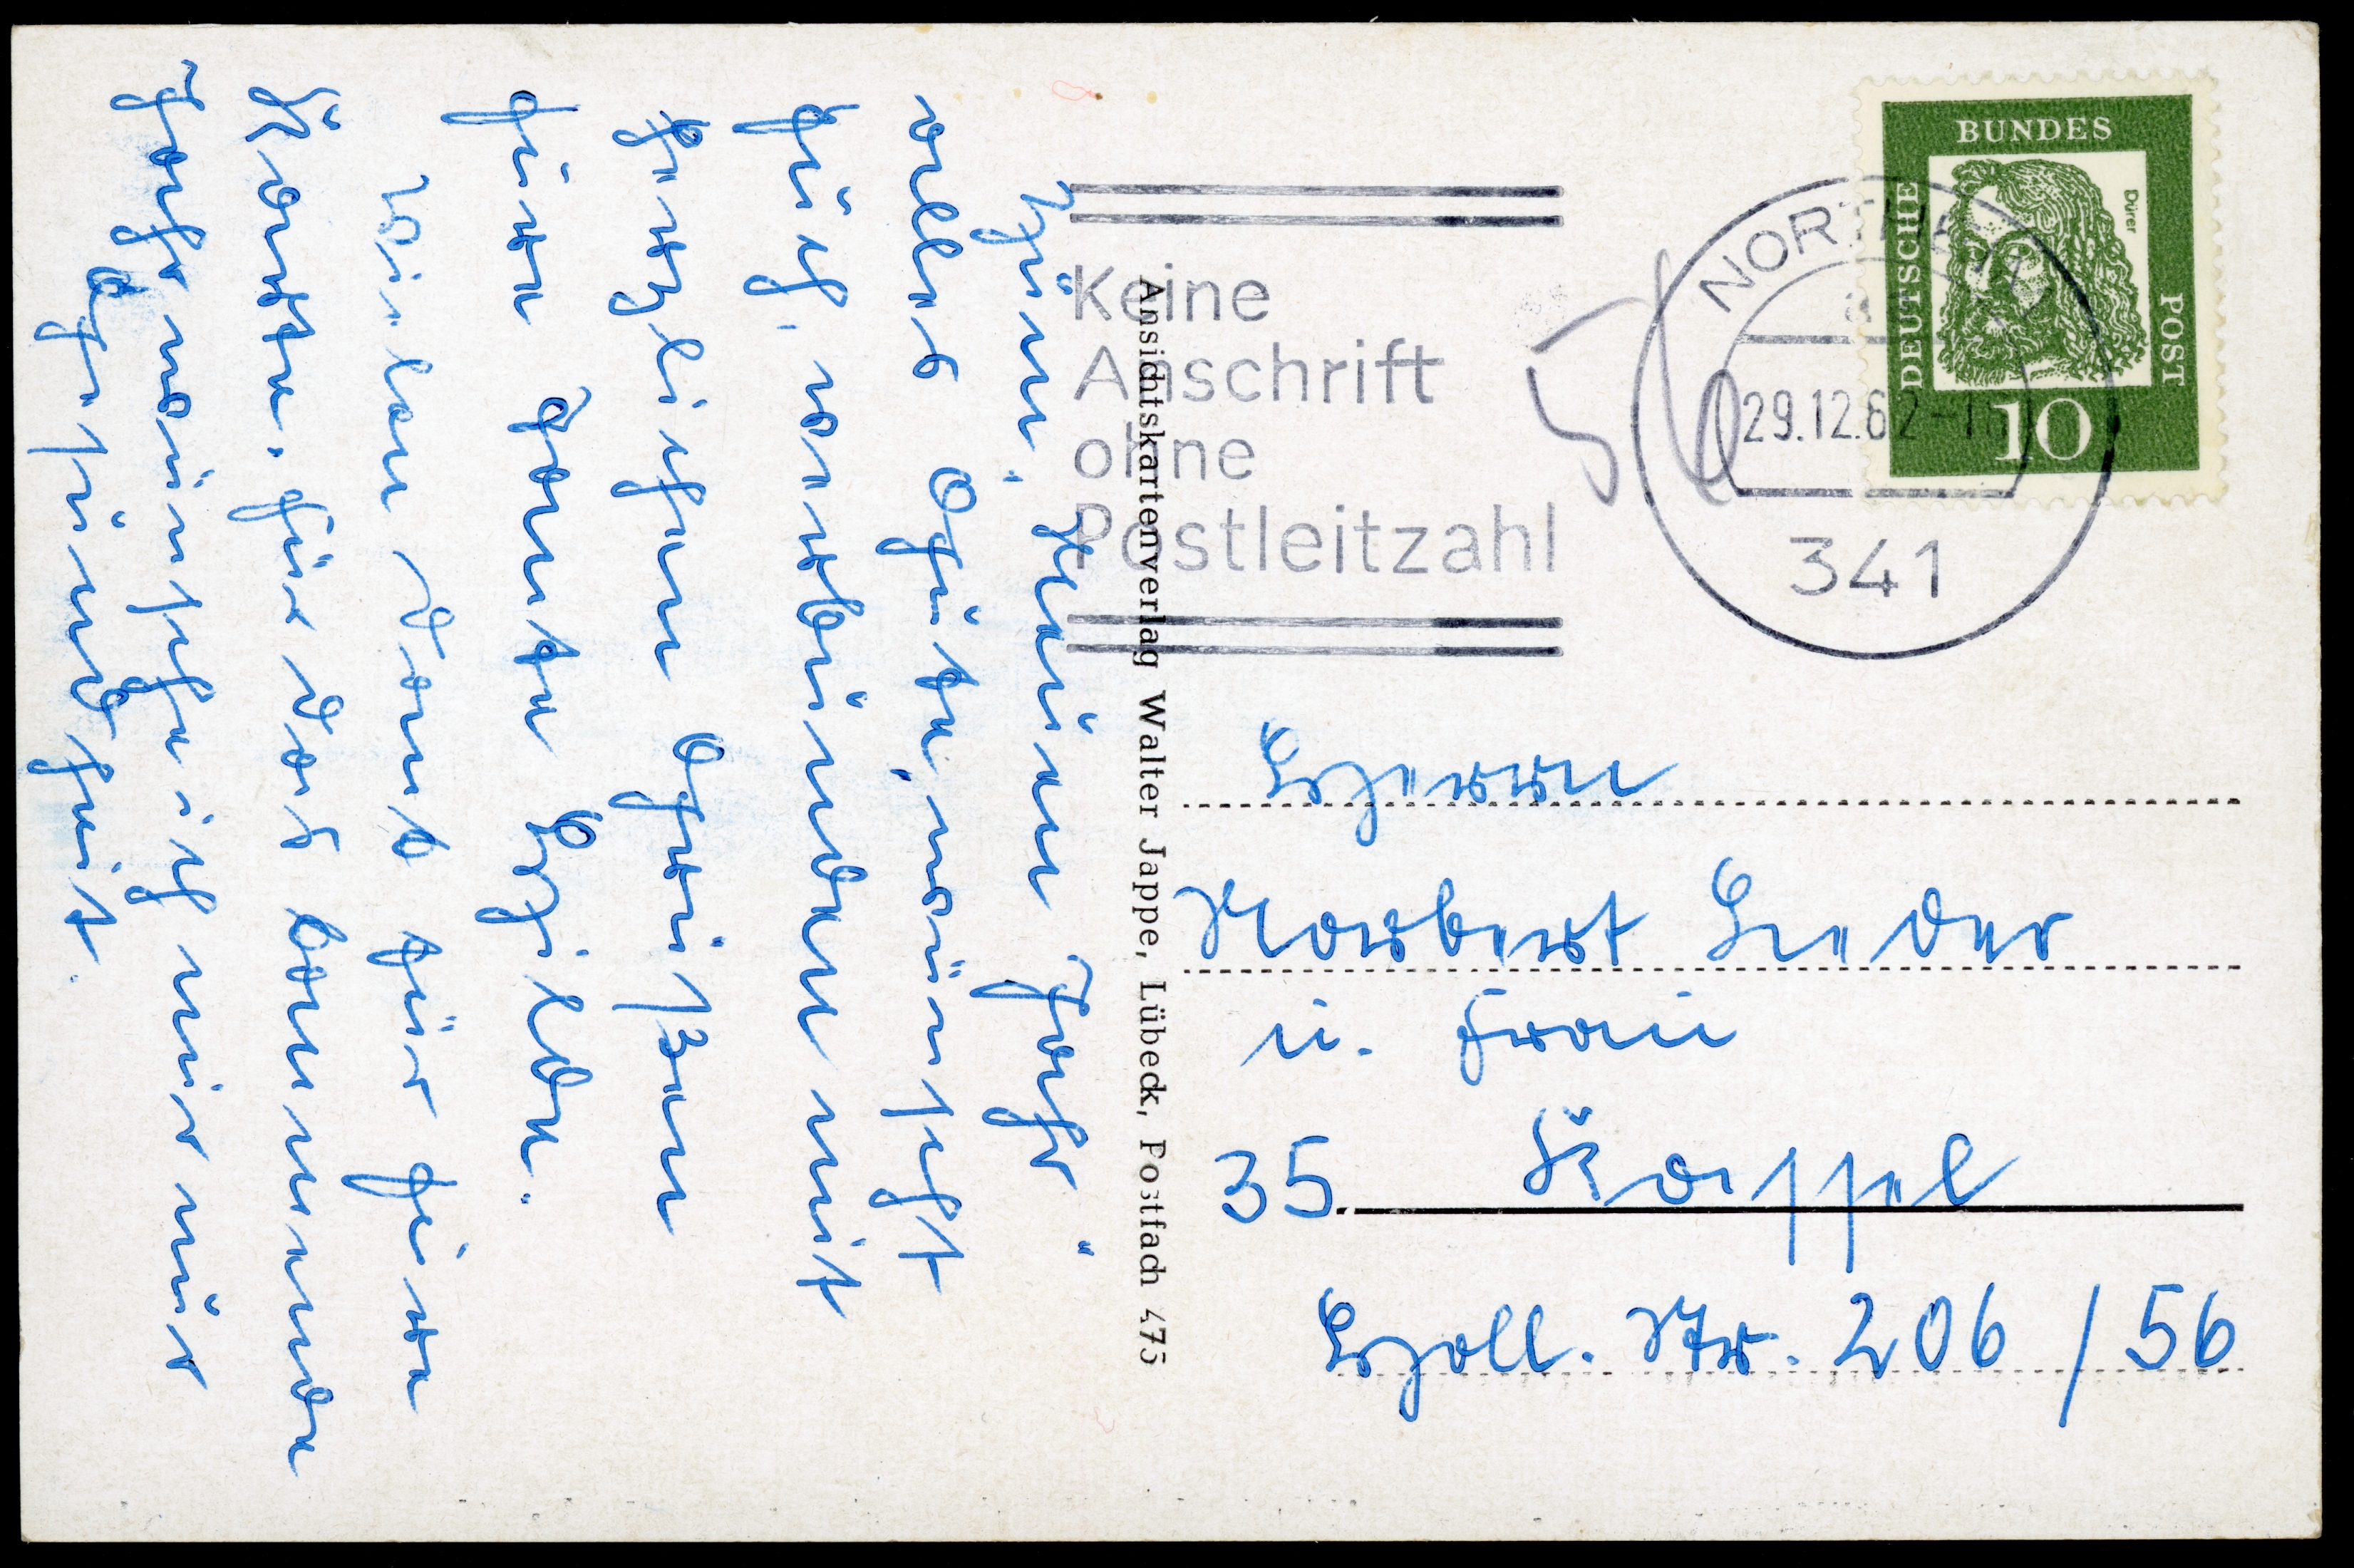 Zum neuen Jahr
alles Gute, wünscht
Euch, verbunden mit
herzlichen Grüßen
Eure Tante Hilde.
Vielen Dank für Eure
Karte. Für das kommende
Jahr wünsche ich mir nur
Gesundheit.
Ansichtskartenverlag Walter Jappe, Lübeck, Postfach 475
Keine
Anschrift
ohne
Postleitzahl
NORTHEIM
a
29.12.62
341
DEUTSCHE BUNDES POST
Dürer
10
Herrn
Norbert
u. Frau
35 Kassel
Holl. Str. 206/56